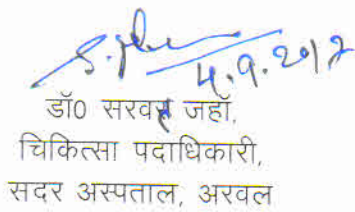 4.9.2012
डॉ0 सरवर जहाँ,
चिकित्सा पदाधिकारी,
सदर अस्पताल, अरवल